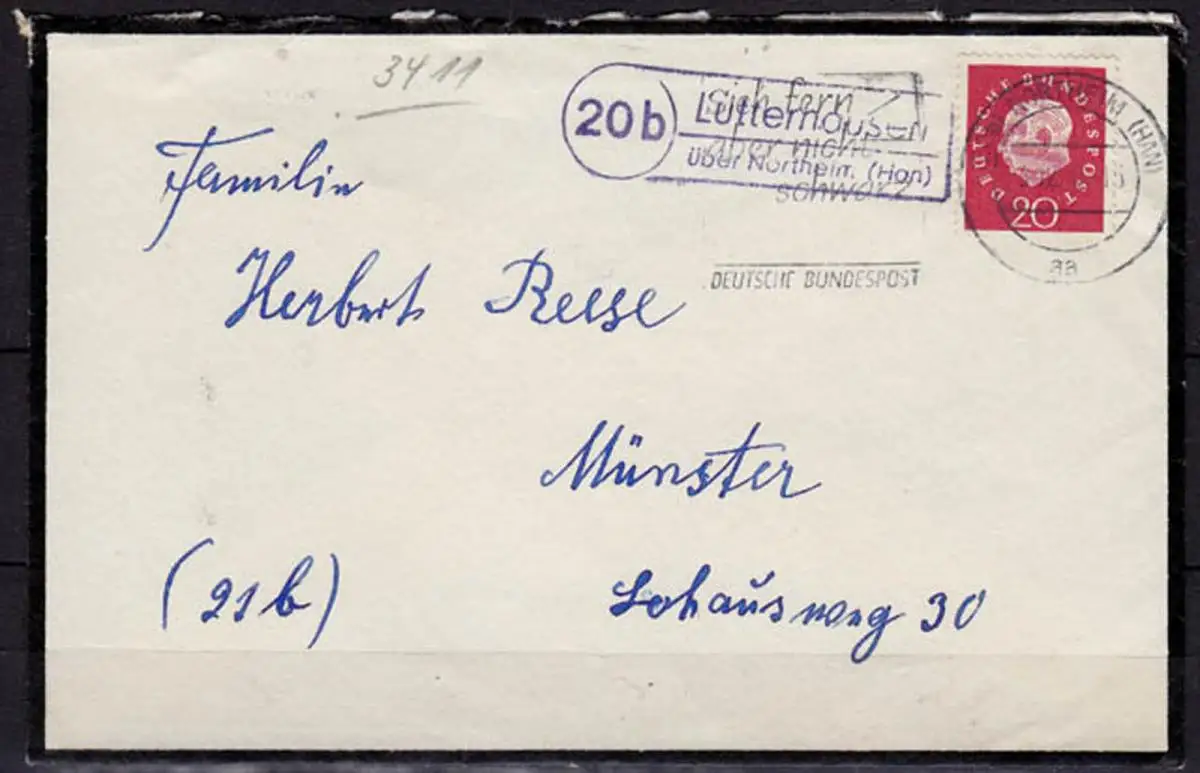 3411
20b Lutterhausen
über Northeim (Han)
sich fern
aber nicht
schwarz
DEUTSCHE BUNDESPOST
DEUTSCHE BUNDESPOST
20
NORTHEIM (HAN)
aa
Familie
Herbert Reese
Münster
(21b) Lohausweg 30